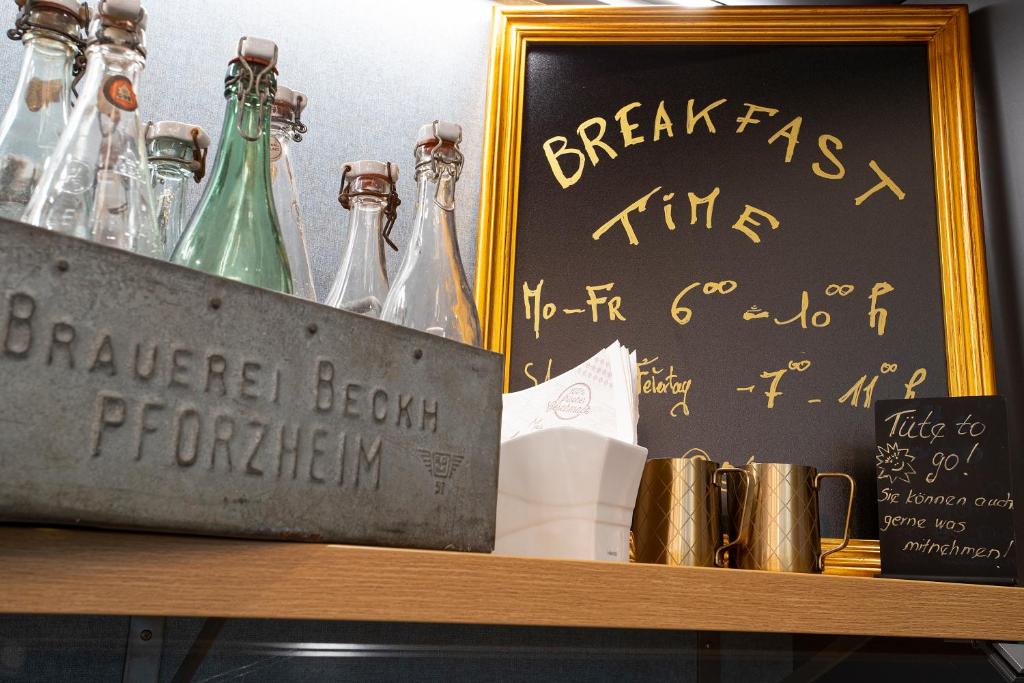 BRAUEREI BECKH
PFORZHEIM
BREAKFAST
TIME
Mo-FR 6⁰⁰ - 10⁰⁰ h
Feiertag - 7⁰⁰ - 11⁰⁰ h
Tüte to
go!
Sie können auch
gerne was
mitnehmen!